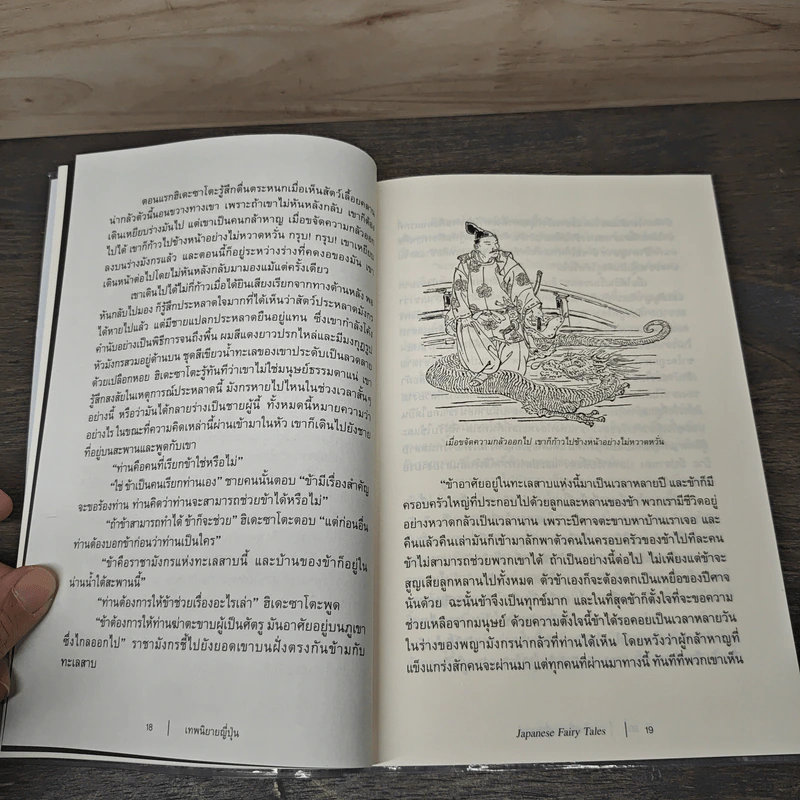 ตอนแรกฮิเดะซาโตะรู้สึกตื่นตระหนกเมื่อเห็นสัตว์เลื้อยคลาน
น่ากลัวตัวนี้นอนขวางทางเขา เพราะถ้าเขาไม่หันหลังกลับ เขาก็ต้อง
เดินเหยียบร่างมันไป แต่เขาเป็นคนกล้าหาญ เมื่อขจัดความกลัวออก
ไปได้ เขาก็ก้าวไปข้างหน้าอย่างไม่หวาดหวั่น กรุบ! กรุบ! เขาเหยียบ
ลงบนร่างมังกรแล้ว และตอนนี้ก็อยู่ระหว่างร่างที่คดงอของมัน เขา
เดินหน้าต่อไปโดยไม่หันหลังกลับมามองแม้แต่ครั้งเดียว
เขาเดินไปได้ไม่กี่ก้าวเมื่อได้ยินเสียงเรียกจากทางด้านหลัง พอ
หันกลับไปมอง ก็รู้สึกประหลาดใจมากที่ได้เห็นว่าสัตว์ประหลาดมังกร
ได้หายไปแล้ว แต่มีชายแปลกประหลาดยืนอยู่แทน ซึ่งเขากำลังโค้ง
คำนับอย่างเป็นพิธีการจนถึงพื้น ผมสีแดงยาวปรกไหล่และมีมงกุฎรูป
หัวมังกรสวมอยู่ด้านบน ชุดสีเขียวน้ำทะเลของเขาประดับเป็นลวดลาย
ด้วยเปลือกหอย ฮิเดะซาโตะรู้ทันทีว่าเขาไม่ใช่มนุษย์ธรรมดาแน่ เขา
รู้สึกสงสัยในเหตุการณ์ประหลาดนี้ มังกรหายไปไหนในช่วงเวลาสั้นๆ
อย่างนี้ หรือว่ามันได้กลายร่างเป็นชายผู้นี้ ทั้งหมดนี้หมายความว่า
อย่างไร ในขณะที่ความคิดเหล่านี้ผ่านเข้ามาในหัว เขาก็เดินไปยังชาย
ที่อยู่บนสะพานและพูดกับเขา
“ท่านคือคนที่เรียกข้าใช่หรือไม่”
“ใช่ ข้าเป็นคนเรียกท่านเอง” ชายคนนั้นตอบ “ข้ามีเรื่องสำคัญ
จะขอร้องท่าน ท่านคิดว่าท่านจะสามารถช่วยข้าได้หรือไม่”
“ถ้าข้าสามารถทำได้ ข้าก็จะช่วย” ฮิเดะซาโตะตอบ “แต่ก่อนอื่น
ท่านต้องบอกข้าก่อนว่าท่านเป็นใคร”
“ข้าคือราชามังกรแห่งทะเลสาบนี้ และบ้านของข้าก็อยู่ใน
น่านน้ำใต้สะพานนี้”
“ท่านต้องการให้ข้าช่วยเรื่องอะไรเล่า” ฮิเดะซาโตะพูด
“ข้าต้องการให้ท่านฆ่าตะขาบผู้เป็นศัตรู มันอาศัยอยู่บนภูเขา
ซึ่งไกลออกไป” ราชามังกรชี้ไปยังยอดเขาบนฝั่งตรงกันข้ามกับ
ทะเลสาบ
18 | เทพนิยายญี่ปุ่น
เมื่อขจัดความกลัวออกไป เขาก็ก้าวไปข้างหน้าอย่างไม่หวาดหวั่น
“ข้าอาศัยอยู่ในทะเลสาบแห่งนี้มาเป็นเวลาหลายปี และข้าก็มี
ครอบครัวใหญ่ที่ประกอบไปด้วยลูกและหลานของข้า พวกเรามีชีวิตอยู่
อย่างหวาดกลัวเป็นเวลานาน เพราะปีศาจตะขาบหาบ้านเราเจอ และ
คืนแล้วคืนเล่ามันก็เข้ามาลักพาตัวคนในครอบครัวของข้าไปทีละคน
ข้าไม่สามารถช่วยพวกเขาได้ ถ้าเป็นอย่างนี้ต่อไป ไม่เพียงแต่ข้าจะ
สูญเสียลูกหลานไปทั้งหมด ตัวข้าเองก็จะต้องตกเป็นเหยื่อของปีศาจ
นั้นด้วย ฉะนั้นข้าจึงเป็นทุกข์มาก และในที่สุดข้าก็ตั้งใจที่จะขอความ
ช่วยเหลือจากมนุษย์ ด้วยความตั้งใจนี้ข้าได้รอคอยเป็นเวลาหลายวัน
ในร่างของพญามังกรน่ากลัวที่ท่านได้เห็น โดยหวังว่าผู้กล้าหาญที่
แข็งแกร่งสักคนจะผ่านมา แต่ทุกคนที่ผ่านมาทางนี้ ทันทีที่พวกเขาเห็น
Japanese Fairy Tales | 19